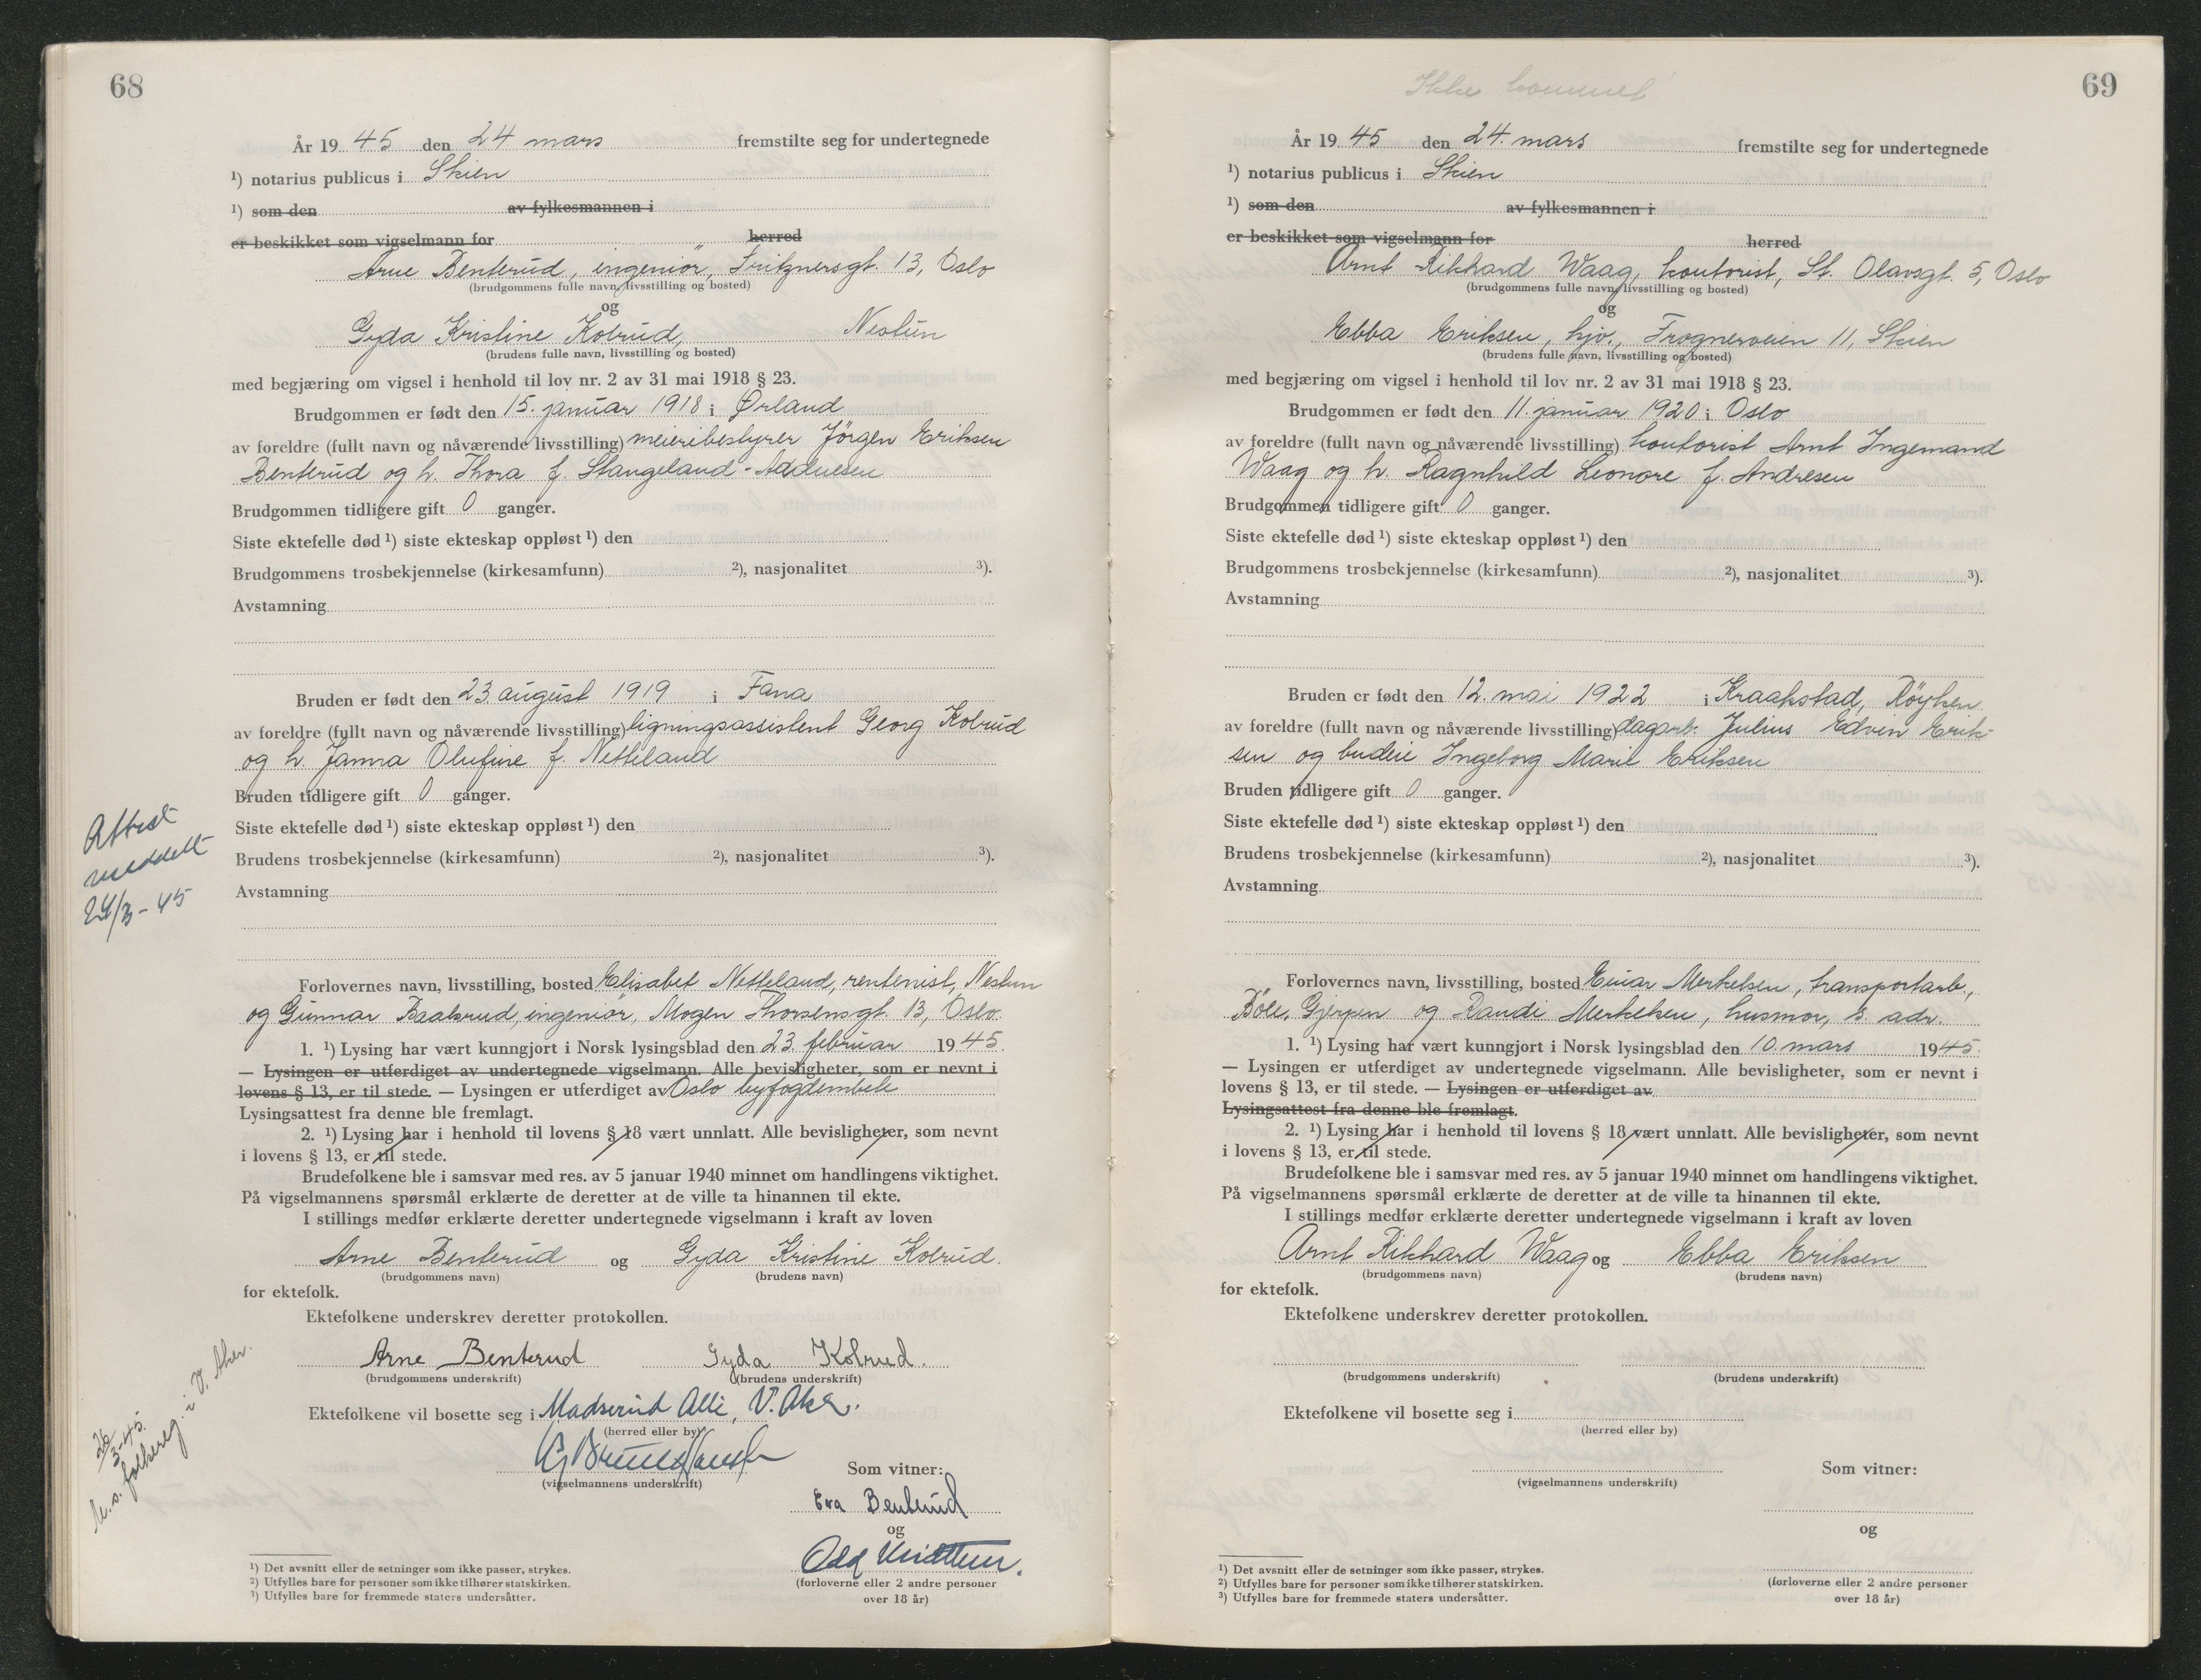 68
År 19 45 den 24 mars fremstilte seg for undertegnede
¹) notarius publicus i Skien
¹) som den av fylkesmannen i
er beskikket som vigselmann for herred
Arne Benterud, ingeniör, Fritznersgt. 13, Oslo
(brudgommens fulle navn, livsstilling og bosted)
og
Gyda Kristine Kolrud, Nestun
(brudens fulle navn, livsstilling og bosted)
med begjæring om vigsel i henhold til lov nr. 2 av 31 mai 1918 § 23.
Brudgommen er født den 15. januar 1918 i Ørland
av foreldre (fullt navn og nåværende livsstilling) meieribestyrer Jörgen Eriksen
Benterud og h. Thora f. Stangeland-
Brudgommen tidligere gift 0 ganger.
Siste ektefelle død ¹) siste ekteskap oppløst ¹) den
Brudgommens trosbekjennelse (kirkesamfunn) ²), nasjonalitet ³).
Avstamning
Bruden er født den 23. august 1919 i Fana
av foreldre (fullt navn og nåværende livsstilling) ligningsassistent Georg Kolrud
og h. Janna Olufine f. Nesteland
Bruden tidligere gift 0 ganger.
Siste ektefelle død ¹) siste ekteskap oppløst ¹) den
Brudens trosbekjennelse (kirkesamfunn) ²), nasjonalitet ³).
Avstamning
Attest
meddelt
24/3-45
Forlovernes navn, livsstilling, bosted Elisabet Netteland, rentenist, Nestun
og Gunnar Baalsrud, ingeniör, Mogen Thorsensgt. 13, Oslo.
1. ¹) Lysing har vært kunngjort i Norsk lysingsblad den 23. februar 19 45.
— Lysingen er utferdiget av undertegnede vigselmann. Alle bevisligheter, som er nevnt i
lovens § 13, er til stede. — Lysingen er utferdiget av Oslo byfogdembete
Lysingsattest fra denne ble fremlagt.
2. ¹) Lysing har i henhold til lovens § 18 vært unnlatt. Alle bevisligheter, som nevnt
i lovens § 13, er til stede.
Brudefolkene ble i samsvar med res. av 5 januar 1940 minnet om handlingens viktighet.
På vigselmannens spørsmål erklærte de deretter at de ville ta hinannen til ekte.
I stillings medfør erklærte deretter undertegnede vigselmann i kraft av loven
Arne Benterud og Gyda Kristine Kolrud.
(brudgommens navn) (brudens navn)
for ektefolk.
Ektefolkene underskrev deretter protokollen.
Arne Benterud Gyda Kolrud.
(brudgommens underskrift) (brudens underskrift)
Ektefolkene vil bosette seg i Madserud Alle, V. Aker.
(herred eller by)
26/3-45.
M. s. folkereg. i V. Aker.
(vigselmannens underskrift)
Som vitner:
Eva Benterud
og
Odd
(forloverne eller 2 andre personer
over 18 år)
¹) Det avsnitt eller de setninger som ikke passer, strykes.
²) Utfylles bare for personer som ikke tilhører statskirken.
³) Utfylles bare for fremmede staters undersåtter.
69
Ikke kommet
År 19 45 den 24. mars fremstilte seg for undertegnede
¹) notarius publicus i Skien
¹) som den av fylkesmannen i
er beskikket som vigselmann for herred
Arnt Rikhard Waag, kontorist, St. Olavsgt. 5, Oslo
(brudgommens fulle navn, livsstilling og bosted)
og
Ebba Eriksen, hjv., Frognerveien 11, Skien
(brudens fulle navn, livsstilling og bosted)
med begjæring om vigsel i henhold til lov nr. 2 av 31 mai 1918 § 23.
Brudgommen er født den 11. januar 1920 i Oslo
av foreldre (fullt navn og nåværende livsstilling) kontorist Arnt Ingemand
Waag og h. Ragnhild Leonore f. Andresen
Brudgommen tidligere gift 0 ganger.
Siste ektefelle død ¹) siste ekteskap oppløst ¹) den
Brudgommens trosbekjennelse (kirkesamfunn) ²), nasjonalitet ³).
Avstamning
Bruden er født den 12. mai 1922 i Kraakstad, Röyken
av foreldre (fullt navn og nåværende livsstilling) dagarb. Julius Edvin Erik-
sen og budeie Ingeborg Marie Eriksen
Bruden tidligere gift 0 ganger.
Siste ektefelle død ¹) siste ekteskap oppløst ¹) den
Brudens trosbekjennelse (kirkesamfunn) ²), nasjonalitet ³).
Avstamning
Forlovernes navn, livsstilling, bosted Einar Merkelsen, transportarb.,
Böle, Gjerpen og Randi Merkelsen, husmor, s. adr.
1. ¹) Lysing har vært kunngjort i Norsk lysingsblad den 10. mars 19 45.
— Lysingen er utferdiget av undertegnede vigselmann. Alle bevisligheter, som er nevnt i
lovens § 13, er til stede. — Lysingen er utferdiget av
Lysingsattest fra denne ble fremlagt.
2. ¹) Lysing har i henhold til lovens § 18 vært unnlatt. Alle bevisligheter, som nevnt
i lovens § 13, er til stede.
Brudefolkene ble i samsvar med res. av 5 januar 1940 minnet om handlingens viktighet.
På vigselmannens spørsmål erklærte de deretter at de ville ta hinannen til ekte.
I stillings medfør erklærte deretter undertegnede vigselmann i kraft av loven
Arnt Rikhard Waag og Ebba Eriksen
(brudgommens navn) (brudens navn)
for ektefolk.
Ektefolkene underskrev deretter protokollen.
(brudgommens underskrift) (brudens underskrift)
Ektefolkene vil bosette seg i
(herred eller by)
(vigselmannens underskrift)
Som vitner:
og
(forloverne eller 2 andre personer
over 18 år)
¹) Det avsnitt eller de setninger som ikke passer, strykes.
²) Utfylles bare for personer som ikke tilhører statskirken.
³) Utfylles bare for fremmede staters undersåtter.